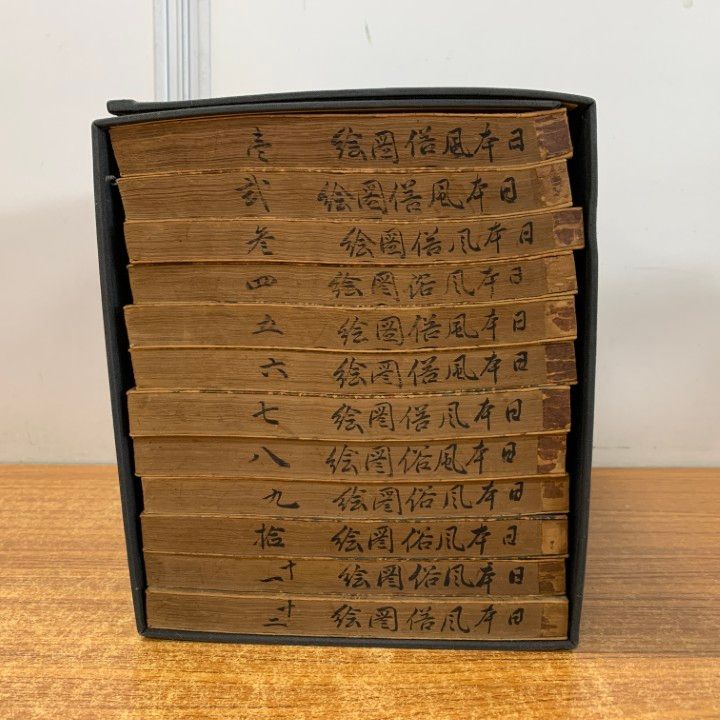 日本風俗圖絵 壱
日本風俗圖絵 弐
日本風俗圖絵 参
日本風俗圖絵 四
日本風俗圖絵 五
日本風俗圖絵 六
日本風俗圖絵 七
日本風俗圖絵 八
日本風俗圖絵 九
日本風俗圖絵 拾
日本風俗圖絵 十一
日本風俗圖絵 十二